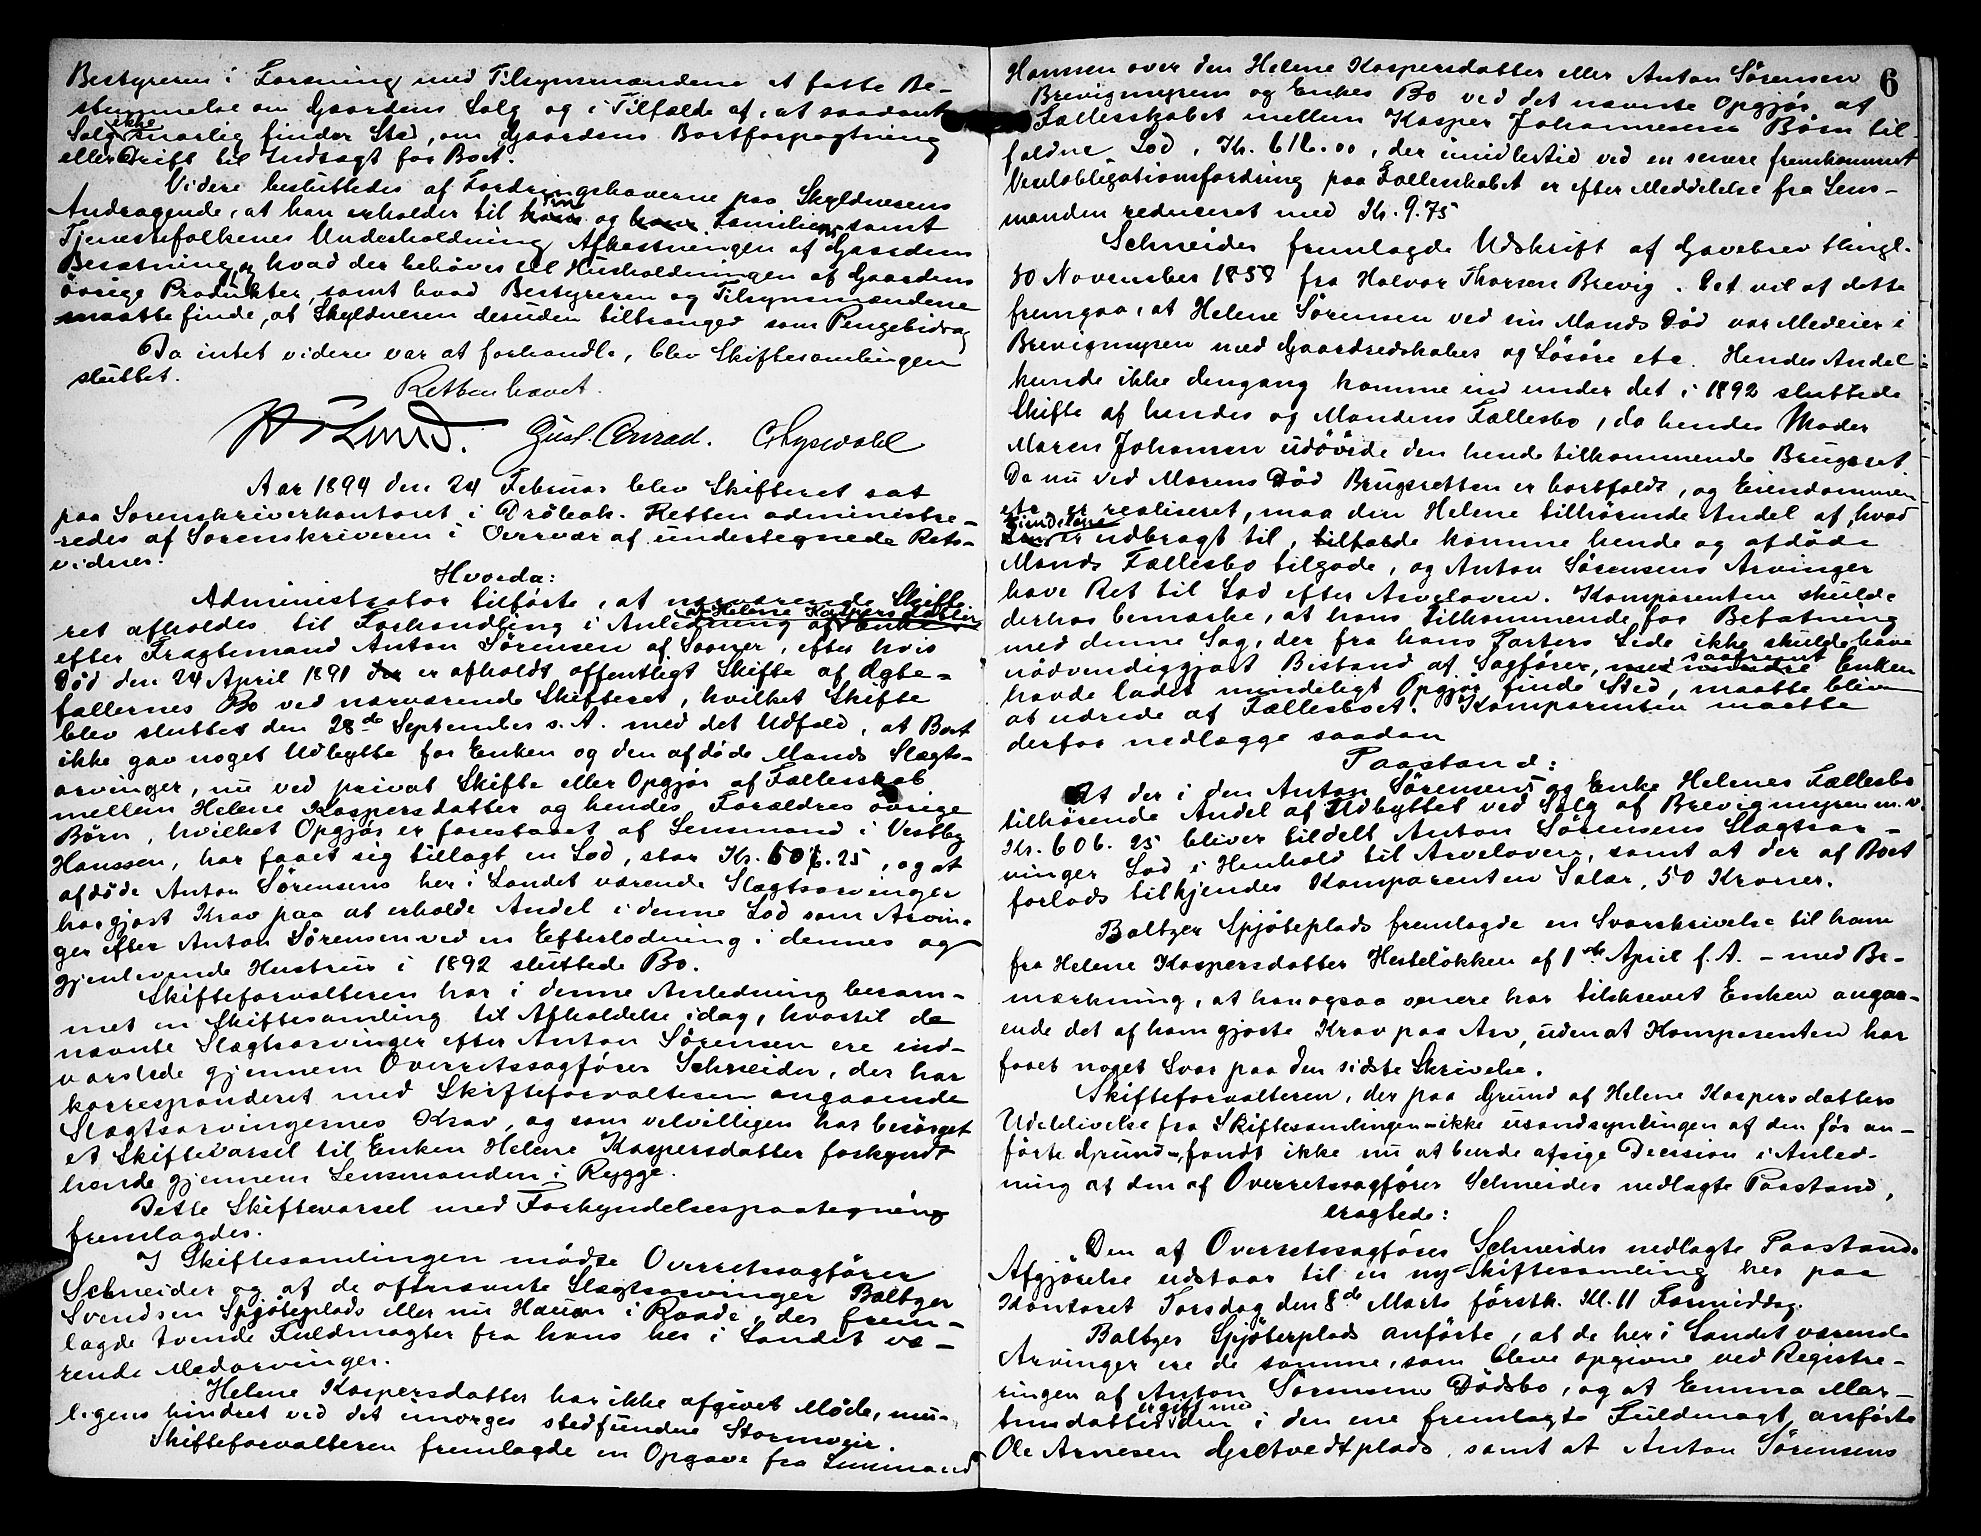 Bestyreren i Forening med Tilsynsmændene at fatte Be-
stemmelse om Gaardens Salg og i Tilfælde af, at saadant
Salg ikke snarlig finder Sted, om Gaardens Bortforpagtning
eller Drift til Indtægt for Boet.
Videre besluttedes af Fordringshaverne paa Skyldnerens
Andragende, at han erholder til sin og Familiens samt
Tjenestefolkenes Underholdning Afkastningen af Gaardens
Besætning, og hvad der behøves til Husholdningen af Gaardens
øvrige Produkter, samt hvad Bestyreren og Tilsynsmændene
maatte finde, at Skyldneren desuden tiltrænger som Pengebidrag
Da intet videre var at forhandle, blev Skiftesamlingen
sluttet.
Retten hævet.
Lund. Gust. Conrad.
Aar 1894 den 24 Februar blev Skifteret sat
paa Sorenskriverkontoret i Drøbak. Retten administre-
redes af Sorenskriveren i Overvær af undertegnede Rets-
vidner.
Hvorda:
Administrator tilførte, at nærværende Skifte-
ret afholdes til Forhandling i Anledning af at Helene Kaspersdatter
efter Fragtemand Anton Sørensen af Sooner, efter hvis
Død den 24 April 1891 er afholdt offentligt Skifte af Ægte-
fællernes Bo ved nærværende Skifteret, hvilket Skifte
blev sluttet den 28de September s. A. med det Udfald, at Boet
ikke gav noget Udbytte for Enken og den afdøde Mands Slægts-
arvinger, nu ved privat Skifte eller Opgjør af Fællesskab
mellem Helene Kaspersdatter og hendes Forældres øvrige
Børn, hvilket Opgjør er forestaaet af Lensmand i Vestby
Hanssen, har faaet sig tillagt en Lod, stor Kr. 606.25, og at
afdøde Anton Sørensens her i Landet værende Slægtsarvinger
har gjort Krav paa at erholde Andel i denne Lod som Arvin-
ger efter Anton Sørensen ved en Efterlodning i dennes og
gjenlevende Hustrus i 1892 sluttede Bo.
Skifteforvalteren har i denne Anledning beram-
met en Skiftesamling til Afholdelse idag, hvortil de
nævnte Slægtsarvinger efter Anton Sørensen ere ind-
varslede gjennem Overretssagfører Schneider, der har
korresponderet med Skifteforvalteren angaaende
Slægtsarvingernes Krav, og som velvilligen har besørget
et Skiftevarsel til Enken Helene Kaspersdatter forkyndt
hende gjennem Lensmanden i Rygge.
Dette Skiftevarsel med Forkyndelsespaategning
fremlagdes.
I Skiftesamlingen mødte Overretssagfører
Schneider og af de oftnævnte Slægtsarvinger Baltzer
Svendsen Spjøteplads eller nu Hauen i Raade, der frem-
lagde tvende Fuldmagter fra hans her i Landet væ-
rende Medarvinger.
Helene Kaspersdatter har ikke afgivet Møde, mu-
ligens hindret ved det imorges stedfundne Stormveir.
Skifteforvalteren fremlagde en Opgave fra Lensmand
6
Hanssen over den Helene Kaspersdatter eller Anton Sørensen
Brevigmyrens og Enkes Bo ved det nævnte Opgjør af
Fællesskabet mellem Kasper Johannesens Børn til-
faldne Lod, Kr. 616.00, der imidlertid ved en senere fremkommet
Vexelobligationsfordring paa Fællesskabet er efter Meddelelse fra Lens-
manden reduceret med Kr. 9.75
Schneider fremlagde Udskrift af Gavebrev thingl.
30 November 1858 fra Halvor Thorsen Brevig. Det vil af dette
fremgaa, at Helene Sørensen ved sin Mands Død var Medeier i
Brevigmyren med Gaardredskaber og Løsøre etc. Hendes Andel
kunde ikke dengang komme ind under det i 1892 sluttede
Skifte af hendes og Mandens Fællesbo, da hendes Moder
Maren Johansen udøvede den hende tilkommende Brugsret.
Da nu ved Marens Død Brugsretten er bortfaldt, og Eiendommen
etc. er realiseret, maa den Helene tilhørende Andel af, hvad
Eiendelene er udbragt til, komme hende og afdøde
Mands Fællesbo tilgode, og Anton Sørensens Arvinger
have Ret til Lod efter Arveloven. Komparenten skulde
derhos bemærke, at hans Tilkommende for Befatning
med denne Sag, der fra hans Parters Side ikke skulde have
nødvendiggjort Bistand af Sagfører, saafremt Enken
havde ladet mindeligt Opgjør finde Sted, maatte blive
at udrede af Fællesboet. Komparenten maatte
derfor nedlægge saadan
Paastand:
At der i den Anton Sørensens og Enke Helenes Fællesbo
tilhørende Andel af Udbyttet ved Salg af Brevigmyren m. v.
Kr. 606. 25 bliver tildelt Anton Sørensens Slægtsar-
vinger Lod i Henhold til Arveloven, samt at der af Boet
forlods tilkjendes Komparenten Salær, 50 Kroner.
Baltzer Spjøteplads fremlagde en Svarskrivelse til ham
fra Helene Kaspersdatter Hesteløkken af 1ste April f. A. – med Be-
mærkning, at han ogsaa senere har tilskrevet Enken angaa-
ende det af ham gjorte Krav paa Arv, uden at Komparenten har
faaet noget Svar paa den sidste Skrivelse.
Skifteforvalteren, der paa Grund af Helene Kaspersdatters
Udeblivelse fra Skiftesamlingen – ikke usandsynligen af den før an-
førte Grund –, fandt ikke nu at burde afsige Decision i Anled-
ning af den af Overretssagfører Schneider nedlagte Paastand,
eragtede:
„Den af Overretssagfører Schneider nedlagte Paastands
Afgjørelse udstaar til en ny Skiftesamling her paa
Kontoret Torsdag den 8de Marts førstk. Kl. 11 Formiddag.
Baltzer Spjøterplads anførte, at de her i Landet værende
Arvinger ere de samme, som bleve opgivne ved Registre-
ringen af Anton Sørensens Dødsbo, og at Emma Mar-
tinsdatter er gift med den i den ene fremlagte Fuldmagt anførte
Ole Arnesen Grætvedtplads, samt at Anton Sørensens